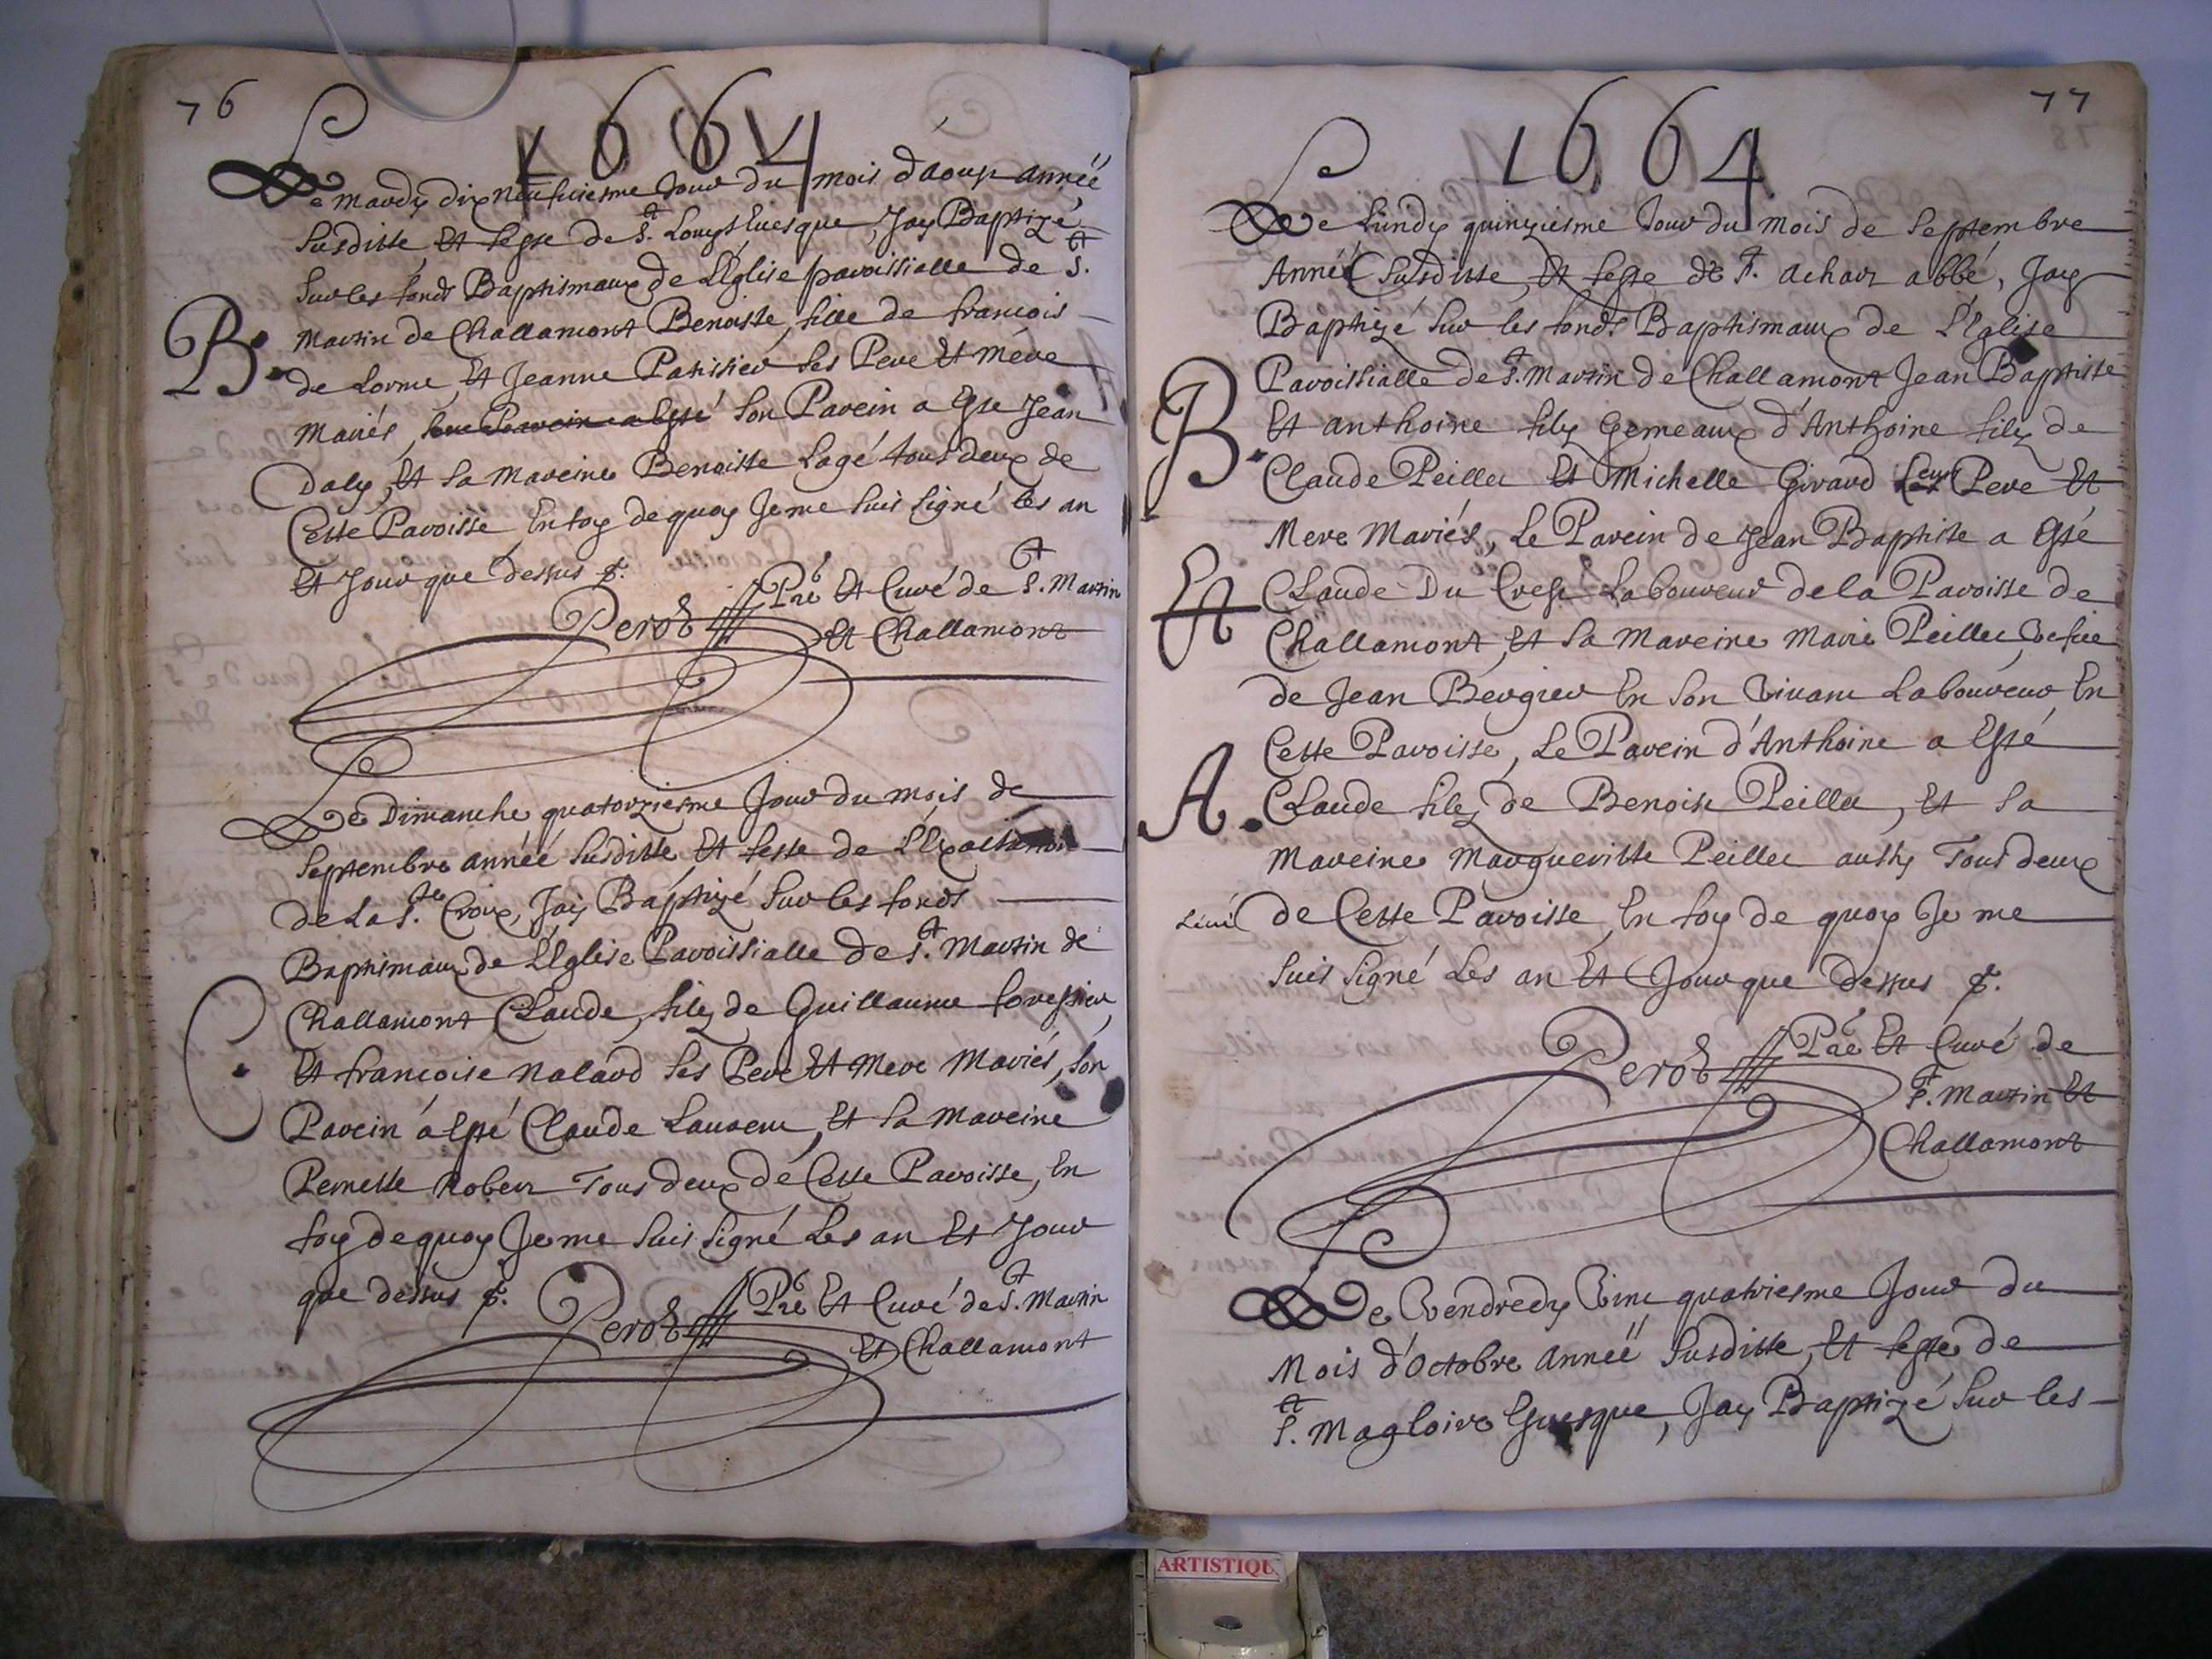 76
1664
Le mardy dix neufuiesme Jour du mois d'aoust année
susditte, Et feste de St. Louys Euesque, Jay Baptizé
sur les fonds Baptismaux de L'Eglise paroissialle de St.
B.
Martin de Challamont Benoiste, fille de francois
de Lorme, Et Jeanne Patissier ses Pere Et Mere
Mariés, son Parein a Esté Jean
Daly, Et sa Mareine Benoiste Lagé tous deux de
Cette Paroisse, En foy de quoy Je me suis signé les an
Et Jour que dessus &.
Perot Pre Et Curé de St. Martin
Et Challamont
Le Dimanche quatorziesme Jour du mois de
Septembre année susditte, Et feste de L'Exaltation
de La Ste. Croix, Jay Baptizé sur les fonds
Baptismaux de L'Eglise Paroissialle de St. Martin de
C.
Challamont Claude, filz de Guillaume forestier,
Et francoise Nalard ses Pere Et Mere Mariés, son
Parein a esté Claude Laurent, Et sa Mareine
Pernette Robert Tous deux de Cette Paroisse, En
foy de quoy Je me suis signé Les an Et Jour
que dessus &.
Perot Pre Et Curé de St. Martin
Et Challamont
77
1664
Le Lundy quinziesme Jour du mois de Septembre
Année susditte, Et feste de St. Achart abbé, Jay
Baptizé sur les fonds Baptismaux de L'Eglise
Paroissialle de St. Martin de Challamont Jean Baptiste
B.
Et anthoine filz Gemeaux d'Anthoine filz de
Claude Peillet Et Michelle Girard Leur Pere Et
Mere Mariés, Le Parein de Jean Baptiste a Esté
Et
Claude Du Crest Laboureur de la Paroisse de
Challamont, Et sa Mareine Marie Peillet Vefue
de Jean Bergier En son Viuant Laboureur En
Cette Paroisse, Le Parein d'Anthoine a Esté
A.
Claude filz de Benoist Peillet, Et sa
Mareine Margueritte Peillet aussy Tous deux
de Cette Paroisse, En foy de quoy Je me
suis signé Les an Et Jour que dessus &.
Perot Pre Et Curé de
St. Martin Et
Challamont
Le Vendredy Vint quatriesme Jour du
Mois d'Octobre Année susditte, Et feste de
St. Magloire Euesque, Jay Baptizé sur les
ARTISTIQU